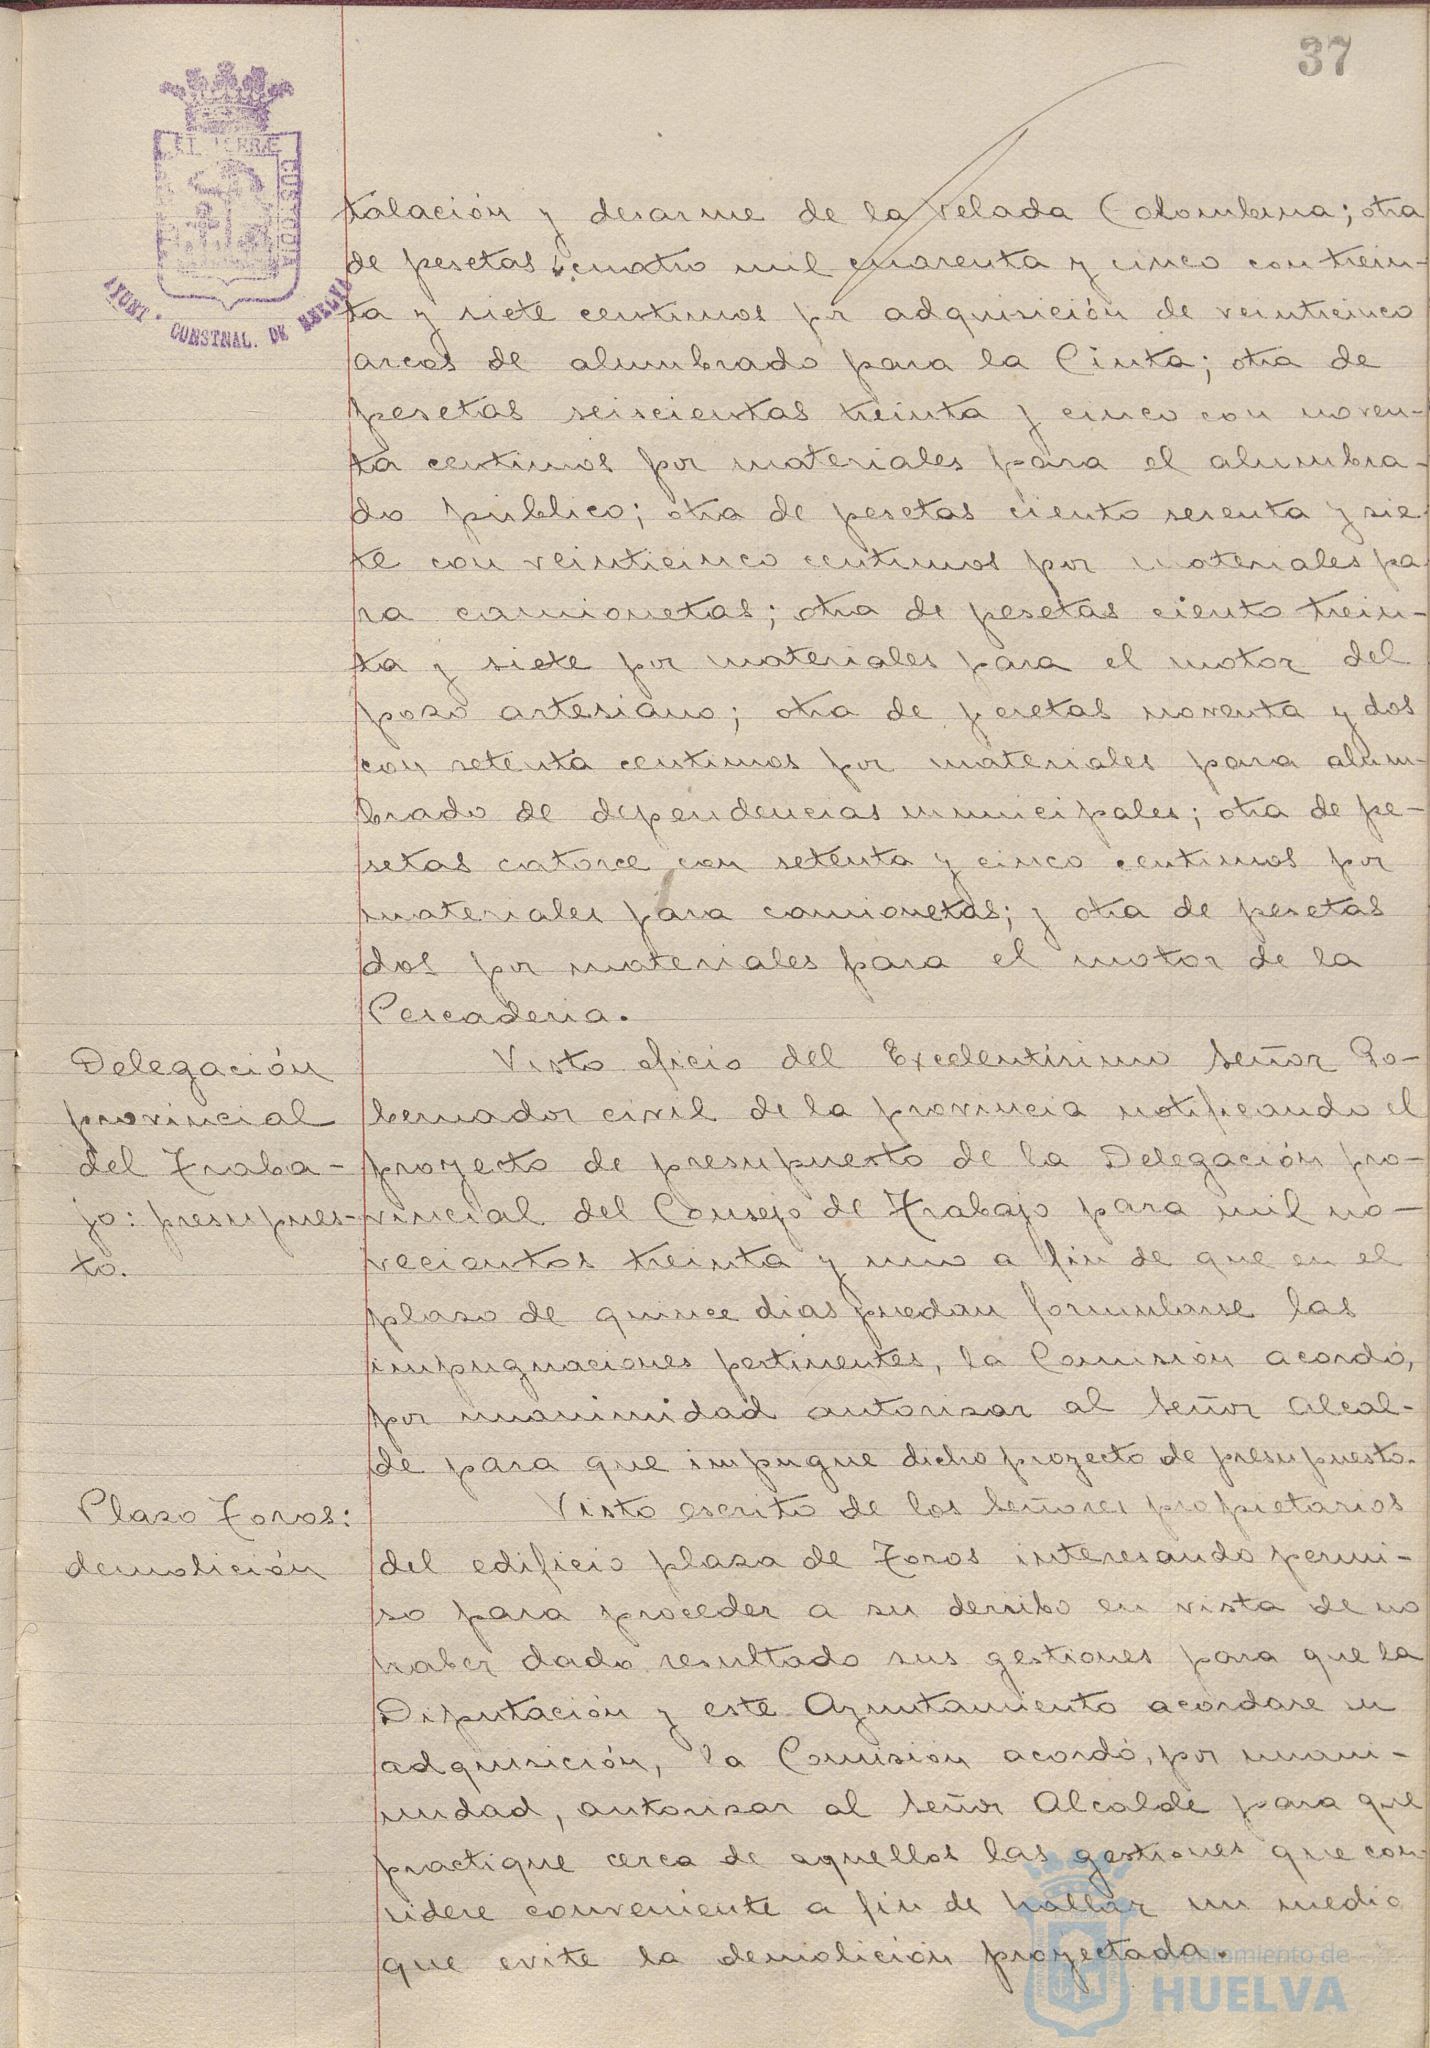 37
talación y desarme de la Velada Colombina; otra
de pesetas cuatro mil cuarenta y cinco con trein-
ta y siete centimos pr adquisición de veinticinco
arcos de alumbrado para la Cinta; otra de
pesetas seiscientas treinta y cinco con noven-
ta centimos por materiales para el alumbra-
do público; otra de pesetas ciento sesenta y sie-
te con veinticinco centimos por materiales pa
ra camionetas; otra de pesetas ciento trein-
ta y siete por materiales para el motor del
pozo artesiano; otra de pesetas noventa y dos
con setenta centimos por materiales para alum-
brado de dependencias municipales; otra de pe-
setas catorce con setenta y cinco centimos por
materiales para camionetas; y otra de pesetas
dos por materiales para el motor de la
Pescaderia.
Delegación
provincial
del Traba-
jo: presupues-
to.
Visto oficio del Excelentísimo Señor Go-
bernador civil de la provincia notificando el
proyecto de presupuesto de la Delegación pro-
vincial del Consejo de Trabajo para mil no-
vecientos treinta y uno a fin de que en el
plazo de quince dias puedan formularse las
impugnaciones pertinentes, la Comisión acordó,
por unanimidad autorizar al Señor Alcal-
de para que impugne dicho proyecto de presupuesto.
Plaza Toros:
demolición
Visto escrito de los Señores propietarios
del edificio plaza de Toros interesando permi-
so para proceder a su derribo en vista de no
haber dado resultado sus gestiones para que la
Diputación y este Ayuntamiento acordare su
adquisición, la Comisión acordó, por unani-
midad, autorizar al Señor Alcalde para que
practique cerca de aquellos las gestiones que con
sidere conveniente a fin de hallar un medio
que evite la demolición proyectada.
AYUNT. CONSTNAL. DE HUELVA
Ayuntamiento de
HUELVA